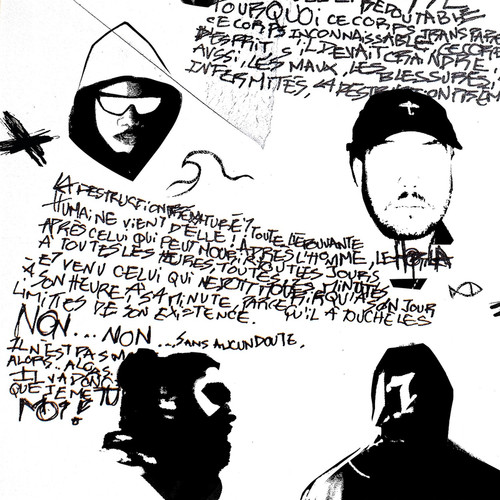 REDOUTABLE
POURQUOI CE CORPS TRANSPARE
CE CORPS INCONNAISSABLE, CE CORPS
D'ESPRIT, S'IL DEVAIT CRAINDRE,
AUSSI, LES MAUX, LES BLESSURES,
INFIRMITÉS, LA DESTRUCTION PREM
LA DESTRUCTION PREMATURÉE?
HUMAINE VIENT D'ELLE! TOUTE L'EPOUVANTE
APRÈS CELUI QUI PEUT MOURIR APRES L'HOMME, LE HORLA
A TOUTES LES HEURES, TOUS LES JOURS
EST VENU CELUI QUI NE DOIT MINUTES
A SON HEURE, A SA MINUTE, PARCE QU' SON JOUR
LIMITES DE SON EXISTENCE. QU'IL A TOUCHÉ LES
NON... NON... SANS AUCUN DOUTE,
IL N'EST PAS M
ALORS.. ALORS.
IL VA DONC
QUE JE ME TU
MOI!